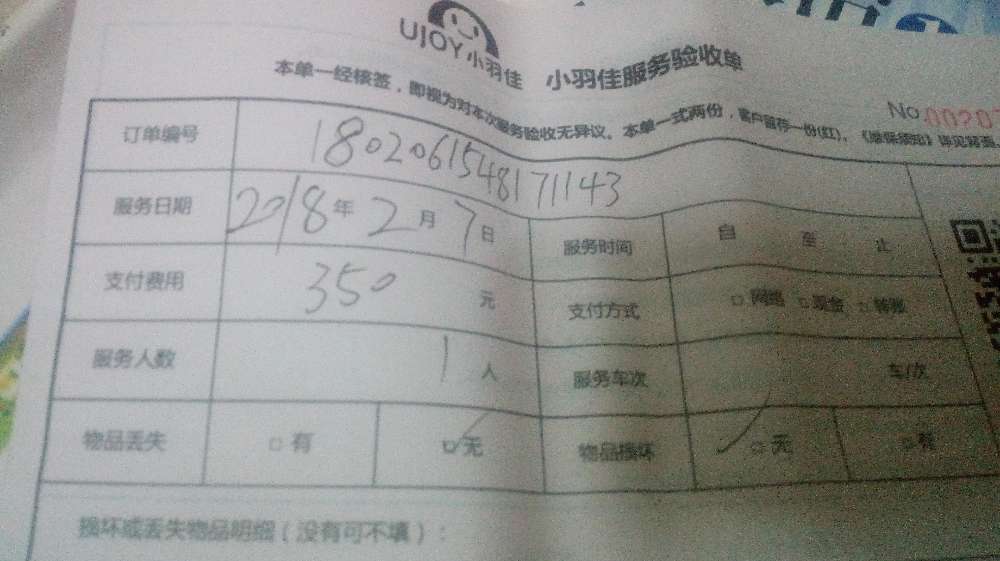 UJOY小羽佳 小羽佳服务验收单
本单一经核签，即视为对本次服务验收无异议。本单一式两份，客户留存一份(红)，《维保须知》详见背面。
No.00203
订单编号 180206154817 1143
服务日期 2018年 2月 7日 服务时间 自 至 止
支付费用 350 元 支付方式 □ 网络 □ 现金 □ 转账
服务人数 1 人 服务车次 车/次
物品丢失 □ 有 □ 无 物品损坏 □ 无 □ 有
损坏或丢失物品明细（没有可不填）：